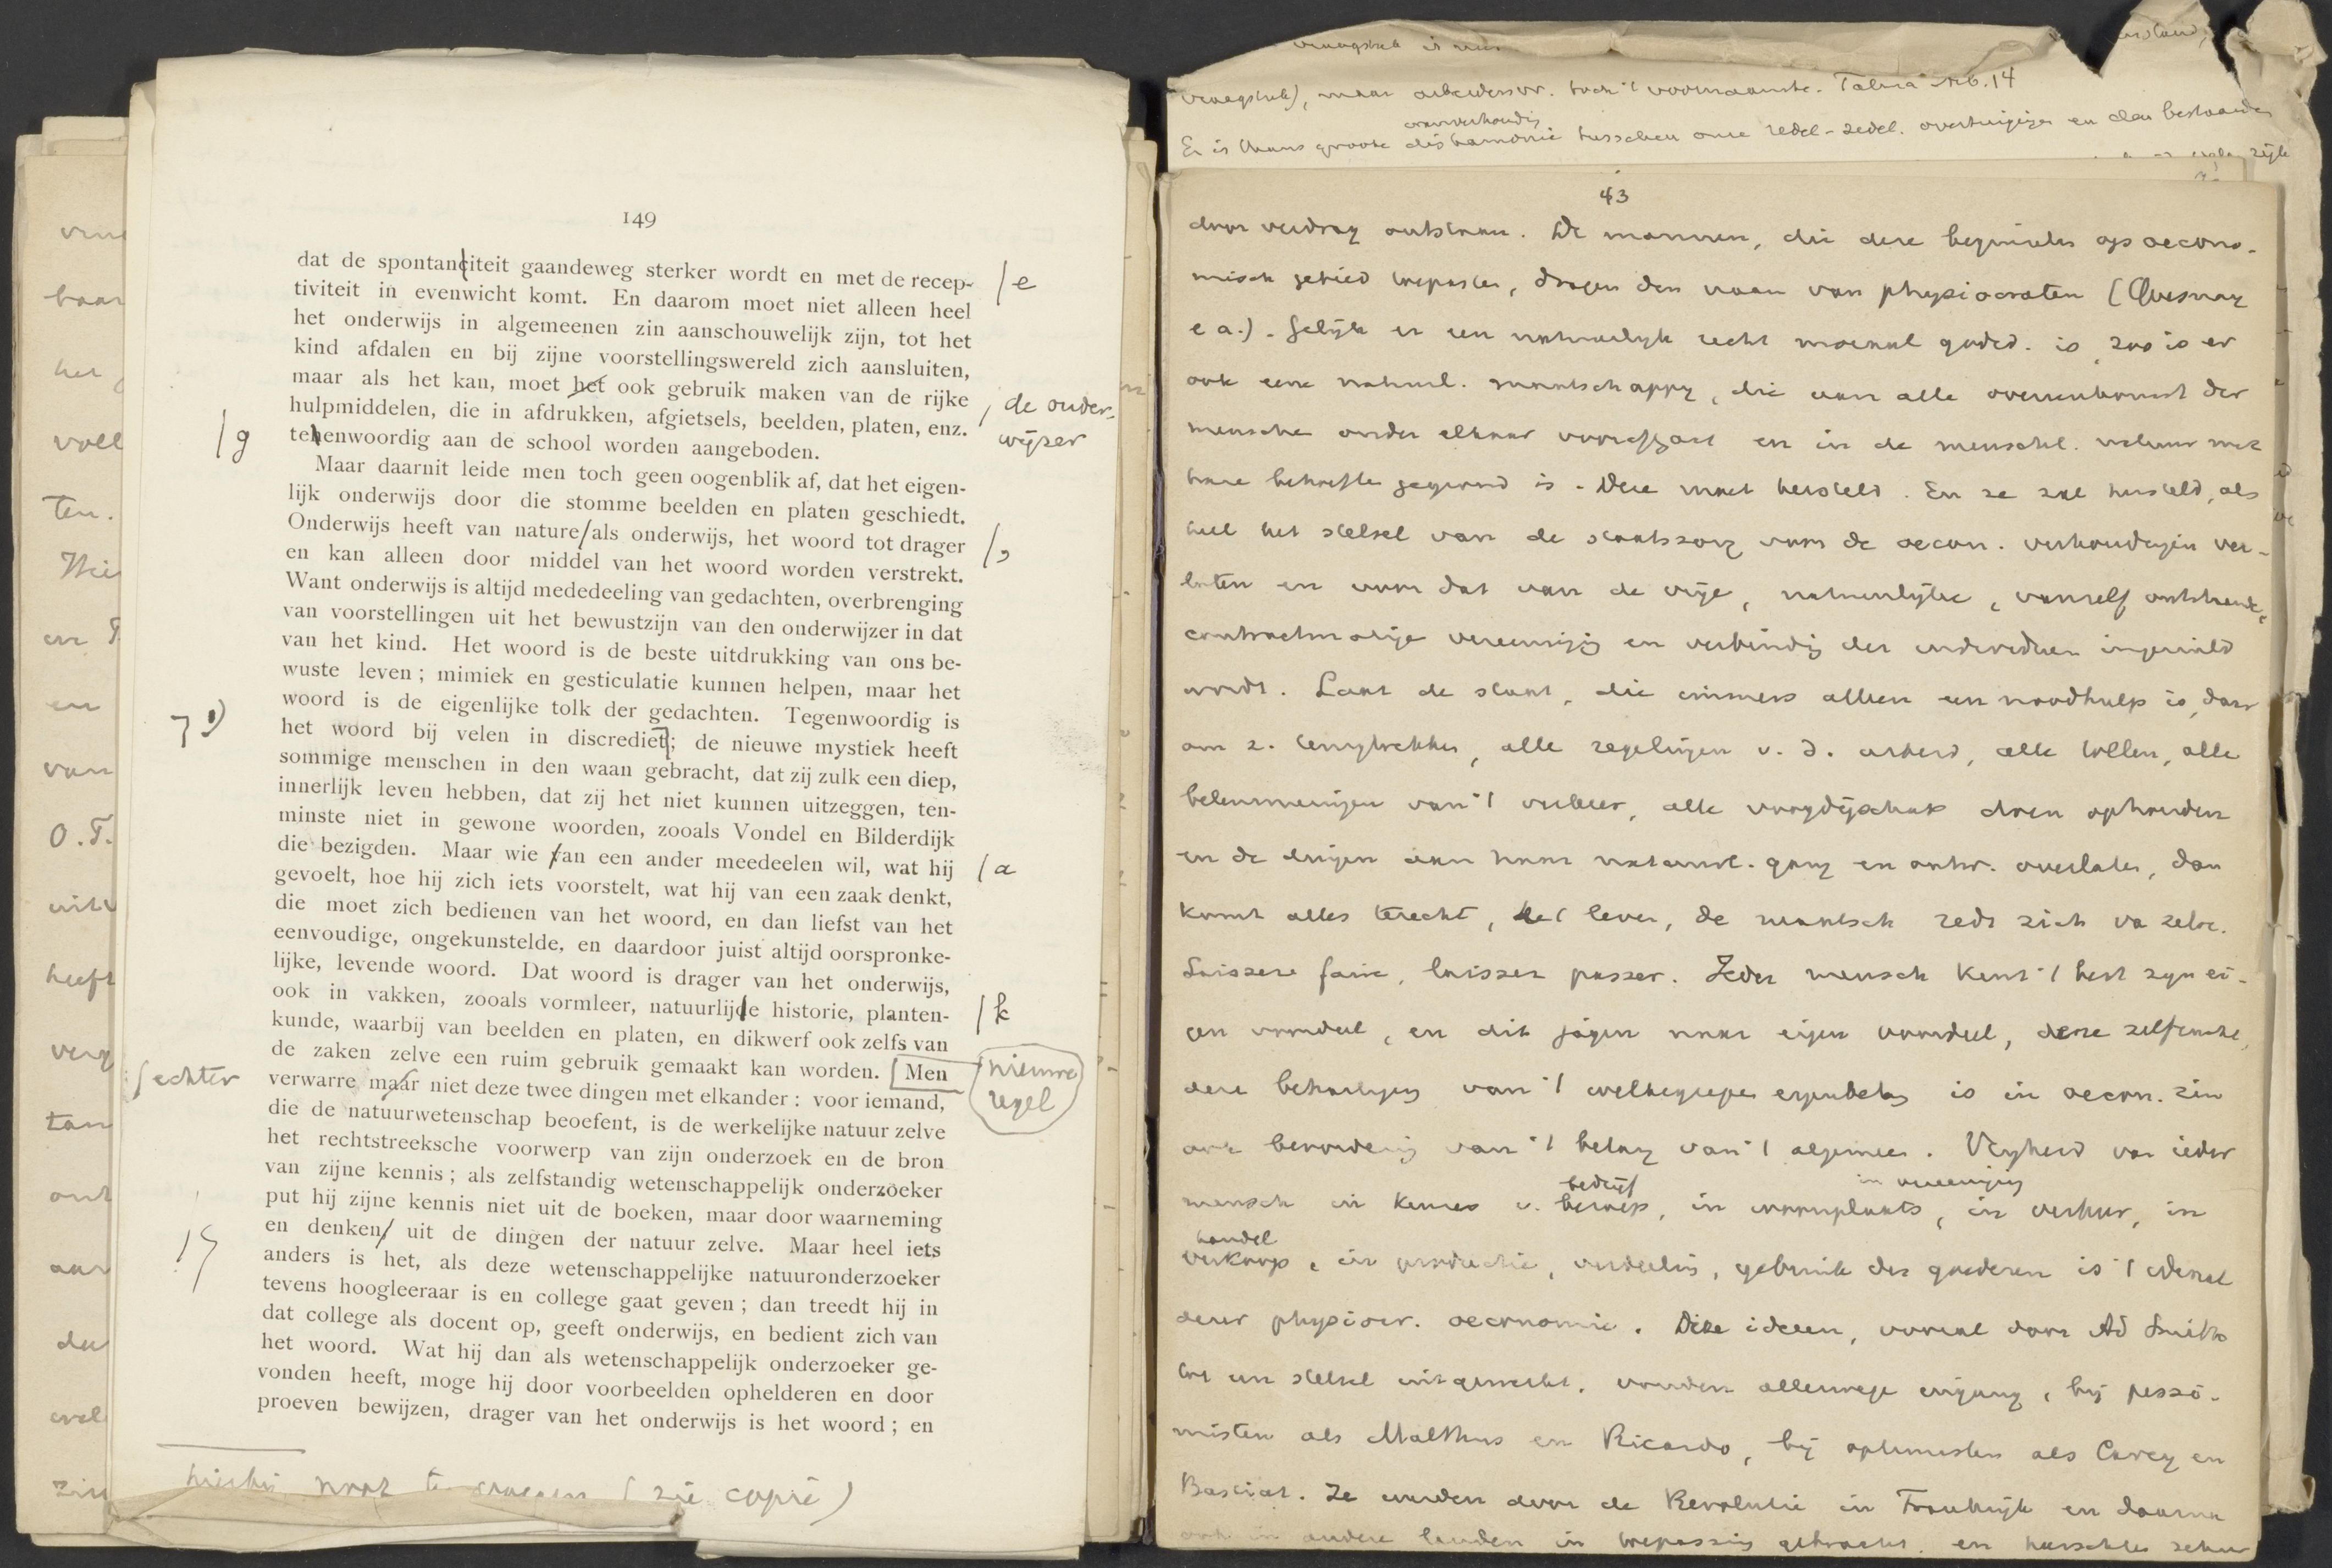 149
dat de spontanciteit gaandeweg sterker wordt en met de recep- /e
tiviteit in evenwicht komt. En daarom moet niet alleen heel
het onderwijs in algemeenen zin aanschouwelijk zijn, tot het
kind afdalen en bij zijne voorstellingswereld zich aansluiten,
maar als het kan, moet het ook gebruik maken van de rijke
hulpmiddelen, die in afdrukken, afgietsels, beelden, platen, enz. / de onder-
/g tehenwoordig aan de school worden aangeboden. wijzer
Maar daarnit leide men toch geen oogenblik af, dat het eigen-
lijk onderwijs door die stomme beelden en platen geschiedt.
Onderwijs heeft van nature/als onderwijs, het woord tot drager /,
en kan alleen door middel van het woord worden verstrekt.
Want onderwijs is altijd mededeeling van gedachten, overbrenging
van voorstellingen uit het bewustzijn van den onderwijzer in dat
van het kind. Het woord is de beste uitdrukking van ons be-
wuste leven; mimiek en gesticulatie kunnen helpen, maar het
woord is de eigenlijke tolk der gedachten. Tegenwoordig is
1) het woord bij velen in discrediet; de nieuwe mystiek heeft
sommige menschen in den waan gebracht, dat zij zulk een diep,
innerlijk leven hebben, dat zij het niet kunnen uitzeggen, ten-
minste niet in gewone woorden, zooals Vondel en Bilderdijk
die bezigden. Maar wie fan een ander meedeelen wil, wat hij /a
gevoelt, hoe hij zich iets voorstelt, wat hij van een zaak denkt,
die moet zich bedienen van het woord, en dan liefst van het
eenvoudige, ongekunstelde, en daardoor juist altijd oorspronke-
lijke, levende woord. Dat woord is drager van het onderwijs,
ook in vakken, zooals vormleer, natuurlijde historie, planten- /k
kunde, waarbij van beelden en platen, en dikwerf ook zelfs van
de zaken zelve een ruim gebruik gemaakt kan worden. [Men nieuwe regel
/echter verwarre maar niet deze twee dingen met elkander: voor iemand,
die de natuurwetenschap beoefent, is de werkelijke natuur zelve
het rechtstreeksche voorwerp van zijn onderzoek en de bron
van zijne kennis; als zelfstandig wetenschappelijk onderzoeker
put hij zijne kennis niet uit de boeken, maar door waarneming
en denken/ uit de dingen der natuur zelve. Maar heel iets
anders is het, als deze wetenschappelijke natuuronderzoeker
tevens hoogleeraar is en college gaat geven; dan treedt hij in
dat college als docent op, geeft onderwijs, en bedient zich van
het woord. Wat hij dan als wetenschappelijk onderzoeker ge-
vonden heeft, moge hij door voorbeelden ophelderen en door
proeven bewijzen, drager van het onderwijs is het woord; en
hierbij noot te (zie copie)
vraagstuk), maar arbeidersvr. toch 't voornaamste. Talma No. 14
wanverhouding
Er is thans groote disharmonie tusschen onze redel-zedel. overtuigingen en den bestaanden
43
door verdrag ontstaan. De mannen, die deze beginselen op oecono-
misch gebied toepasten, dragen den naam van physiocraten (Quesnay
e a.). Gelijk er een natuurlijk recht moraal godsd. is, zoo is er
ook eene natuurl. maatschappy, die aan alle overeenkomst der
menschen onder elkaar voorafgaat en in de menschl. natuur met
hare behoeften gegrond is. Deze moet hersteld. En ze zal hersteld, als
heel het stelsel van de staatszorg voor de oecon. verhoudingen ver-
laten en voor dat van de vrije, natuurlijke, vanzelf ontstaande,
contractmatige vereeniging en verbinding der individuen ingeruild
wordt. Laat de staat, die immers alleen een noodhulp is, daar
om z. terugtrekken, alle regelingen v. d. arbeid, alle tollen, alle
belemmeringen van 't verkeer, alle voogdijschap doen ophouden
en de dingen aan haar natuurl. gang en ontw. overlaten, dan
komt alles terecht, het leven, de maatsch redt zich va zelve.
Laissez faire, laisser passer. Ieder mensch kent 't best zyn ei-
gen voordeel, en dit jagen naar eigen voordeel, deze zelfzucht,
deze behartiging van 't welbegrepen eigenbelang is in oecon. zin
ook bevordering van 't belang van 't algemeen. Vryheid van ieder
bedrijf in vereeniging
mensch in keuze v. beroep, in woonplaats, in verhuur, in
handel
verkoop, in productie, verdeeling, gebruik der goederen is 't ideaal
dezer physiocr. oeconomie. Deze ideeen, vooral door Ad Smith
tot een stelsel uitgewerkt, vonden allerwege ingang, bij pessi-
misten als Malthus en Ricardo, bij optimisten als Carey en
Bastiat. Ze werden door de Revolutie in Frankrijk en daarna
ook in andere landen in toepassing gebracht, en